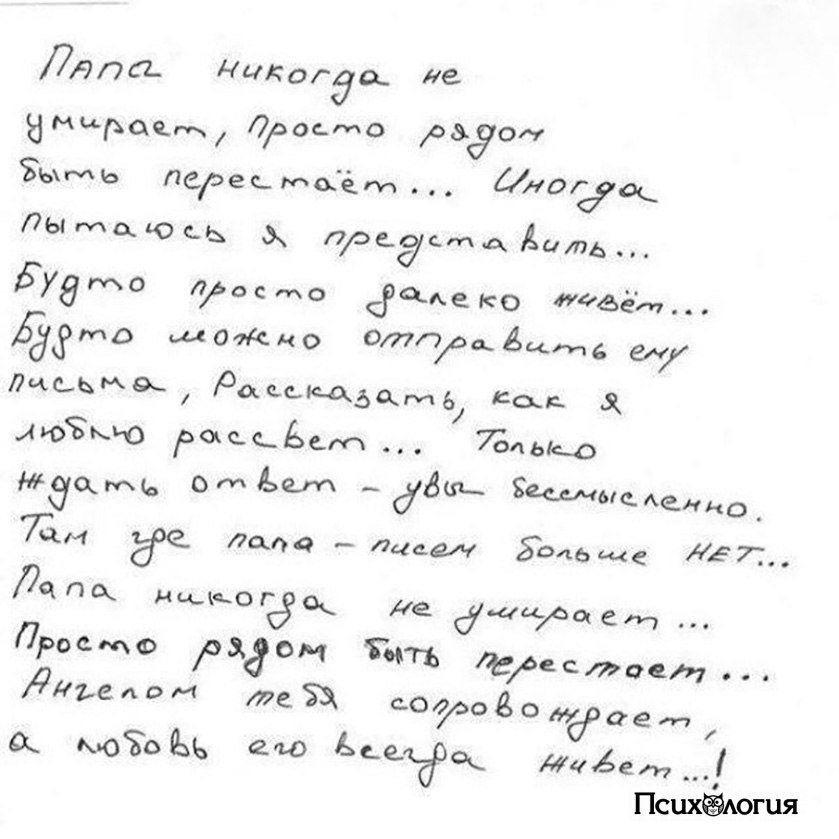 Папа никогда не
умирает, просто рядом
быть перестаёт... Иногда
пытаюсь я представить...
Будто просто далеко живёт...
Будто можно отправить ему
письма, Рассказать, как я
люблю рассвет... Только
ждать ответ - увы бессмысленно.
Там где папа - писем больше НЕТ...
Папа никогда не умирает...
Просто рядом быть перестает...
Ангелом тебя сопровождает,
а любовь его всегда живет...!
Психология